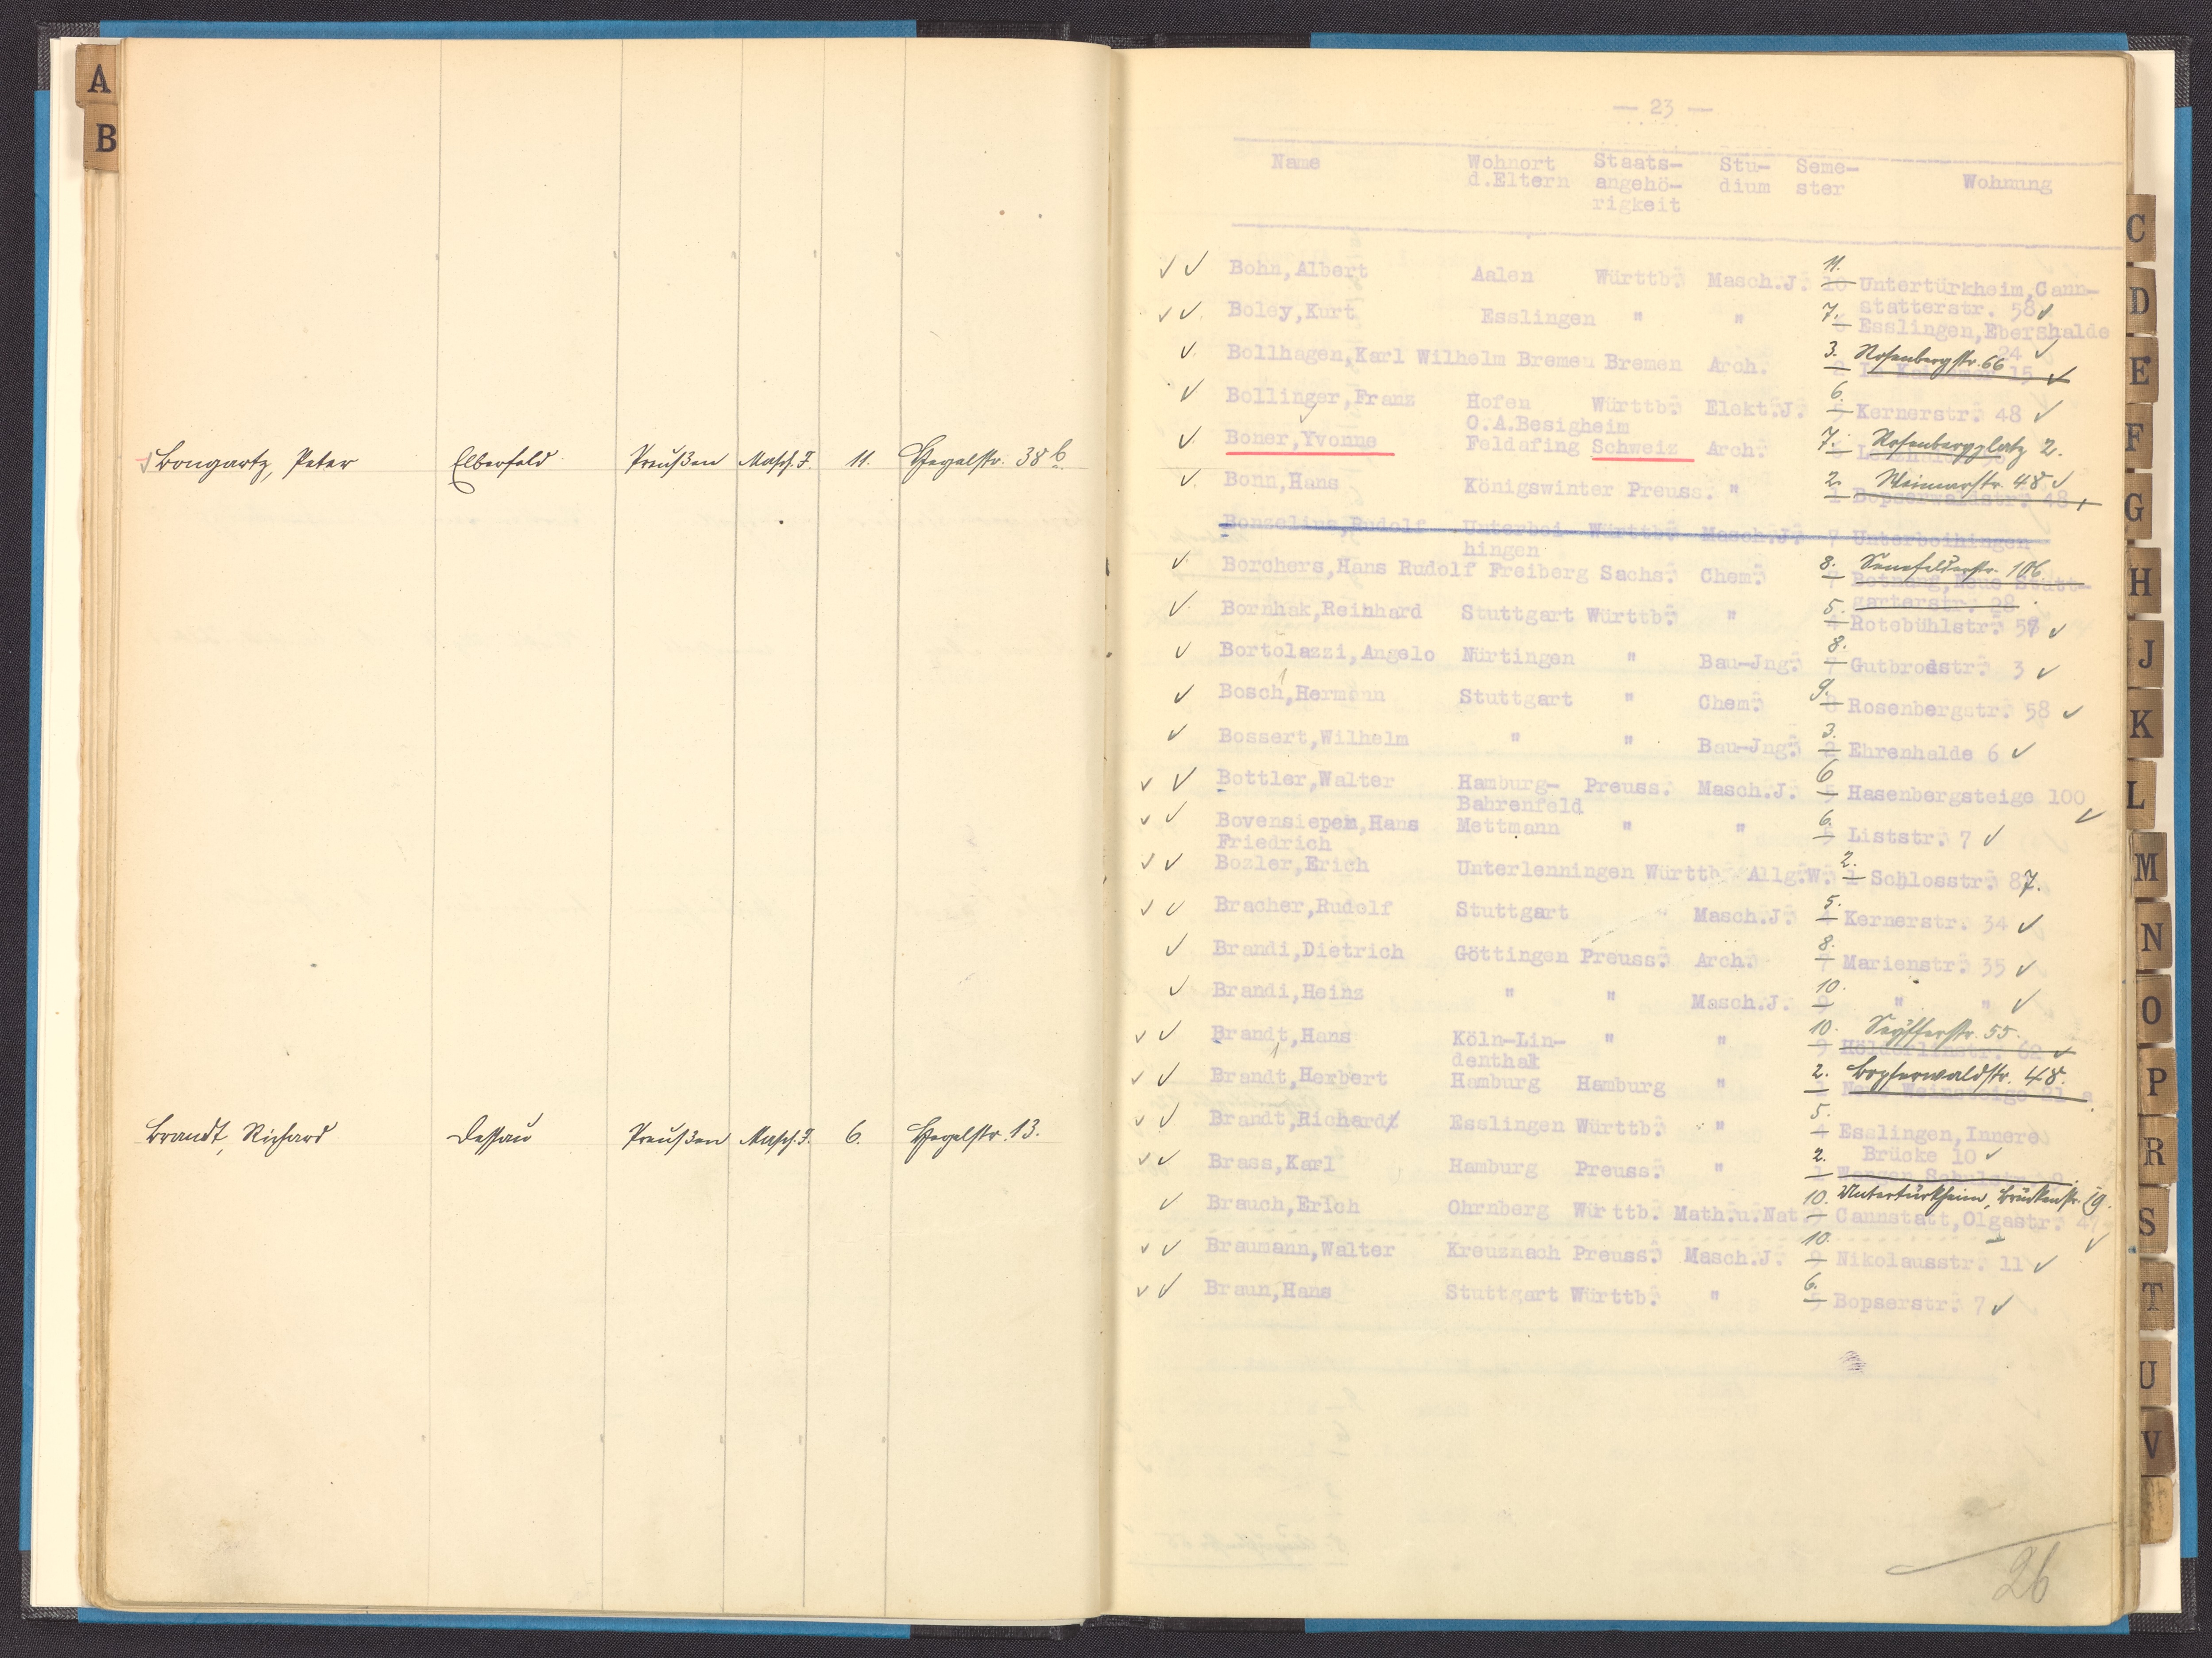 A
B
Bongartz, Peter Elberfeld Preußen Masch.I. 11. Hegelstr. 38 b
Brandt, Richard Dessau Preußen Masch.I. 6. Hegelstr. 13.
— 23 —
Name Wohnort Staats- Stu- Seme- Wohnung
d.Eltern angehö- dium ster
rigkeit
Bohn,Albert Aalen Württb. Masch.J. 11. 10 Untertürkheim,Cann-
statterstr. 58
Boley,Kurt Esslingen " " 7. 6 Esslingen,Ebershalde
24
Bollhagen,Karl Wilhelm Bremen Bremen Arch. 3. Rosenbergstr. 66
2 15
Bollinger,Franz Hofen Württb. Elekt.J. 6. 5 Kernerstr. 48
O.A.Besigheim
Boner,Yvonne Feldafing Schweiz Arch. 7. Rosenbergplatz 2.
Bonn,Hans Königswinter Preuss. " 2. Weimarstr. 48
1 Bopserwaldstr. 48
Bonzelius,Rudolf Unterboi- Württb. Masch.J. 7 Unterboihingen
hingen
Borchers,Hans Rudolf Freiberg Sachs. Chem. 8. Senefelderstr. 106
7 Botnang,Neue Stutt-
garterstr. 28
Bornhak,Reinhard Stuttgart Württb. " 5. 4 Rotebühlstr. 57
Bortolazzi,Angelo Nürtingen " Bau-Jng. 8. 7 Gutbrodstr. 3
Bosch,Hermann Stuttgart " Chem. 9. 8 Rosenbergstr. 58
Bossert,Wilhelm " " Bau-Jng. 3. 2 Ehrenhalde 6
Bottler,Walter Hamburg- Preuss. Masch.J. 6 5 Hasenbergsteige 100
Bahrenfeld
Bovensiepen,Hans Mettmann " " 6. 5 Liststr. 7
Friedrich
Bozler,Erich Unterlenningen Württb. Allg.W. 2. 1 Schlosstr. 87.
Bracher,Rudolf Stuttgart " Masch.J. 5. 4 Kernerstr. 34
Brandi,Dietrich Göttingen Preuss. Arch. 8. 7 Marienstr. 35
Brandi,Heinz " " Masch.J. 10. 9 " "
Brandt,Hans Köln-Lin- " " 10. Seyfferstr. 55.
denthal 9 Hölderlinstr. 62
Brandt,Herbert Hamburg Hamburg " 2. Bopserwaldstr. 48.
1 Neue Weinsteige 21 a
Brandt,Richard Esslingen Württb. " 5. 4 Esslingen,Innere
Brücke 10
Brass,Karl Hamburg Preuss. " 2. 1
Untertürkheim, Brückenstr. 19.
Brauch,Erich Ohrnberg Württb. Math.u.Nat. 10. 9 Cannstatt,Olgastr. 47
Braumann,Walter Kreuznach Preuss. Masch.J. 10. 9 Nikolausstr. 11
Braun,Hans Stuttgart Württb. " 6. 5 Bopserstr. 7
26
C
D
E
F
G
H
J
K
L
M
N
O
P
R
S
T
U
V